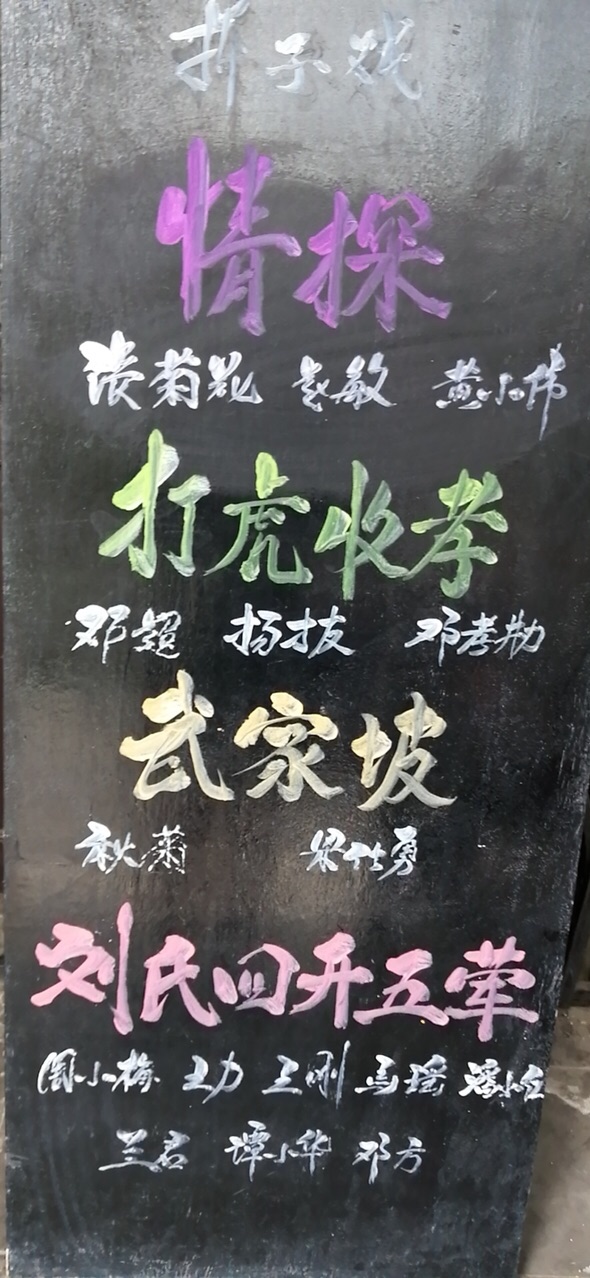 折子戏
情探
菊花 敏 黄小伟
打虎收孝
邓超 扬扳 邓孝勋
武家坡
秋菊 梁仕勇
刘氏四开五荤
周小梅 王刚 马瑶 潘小红
谭小华 邓方